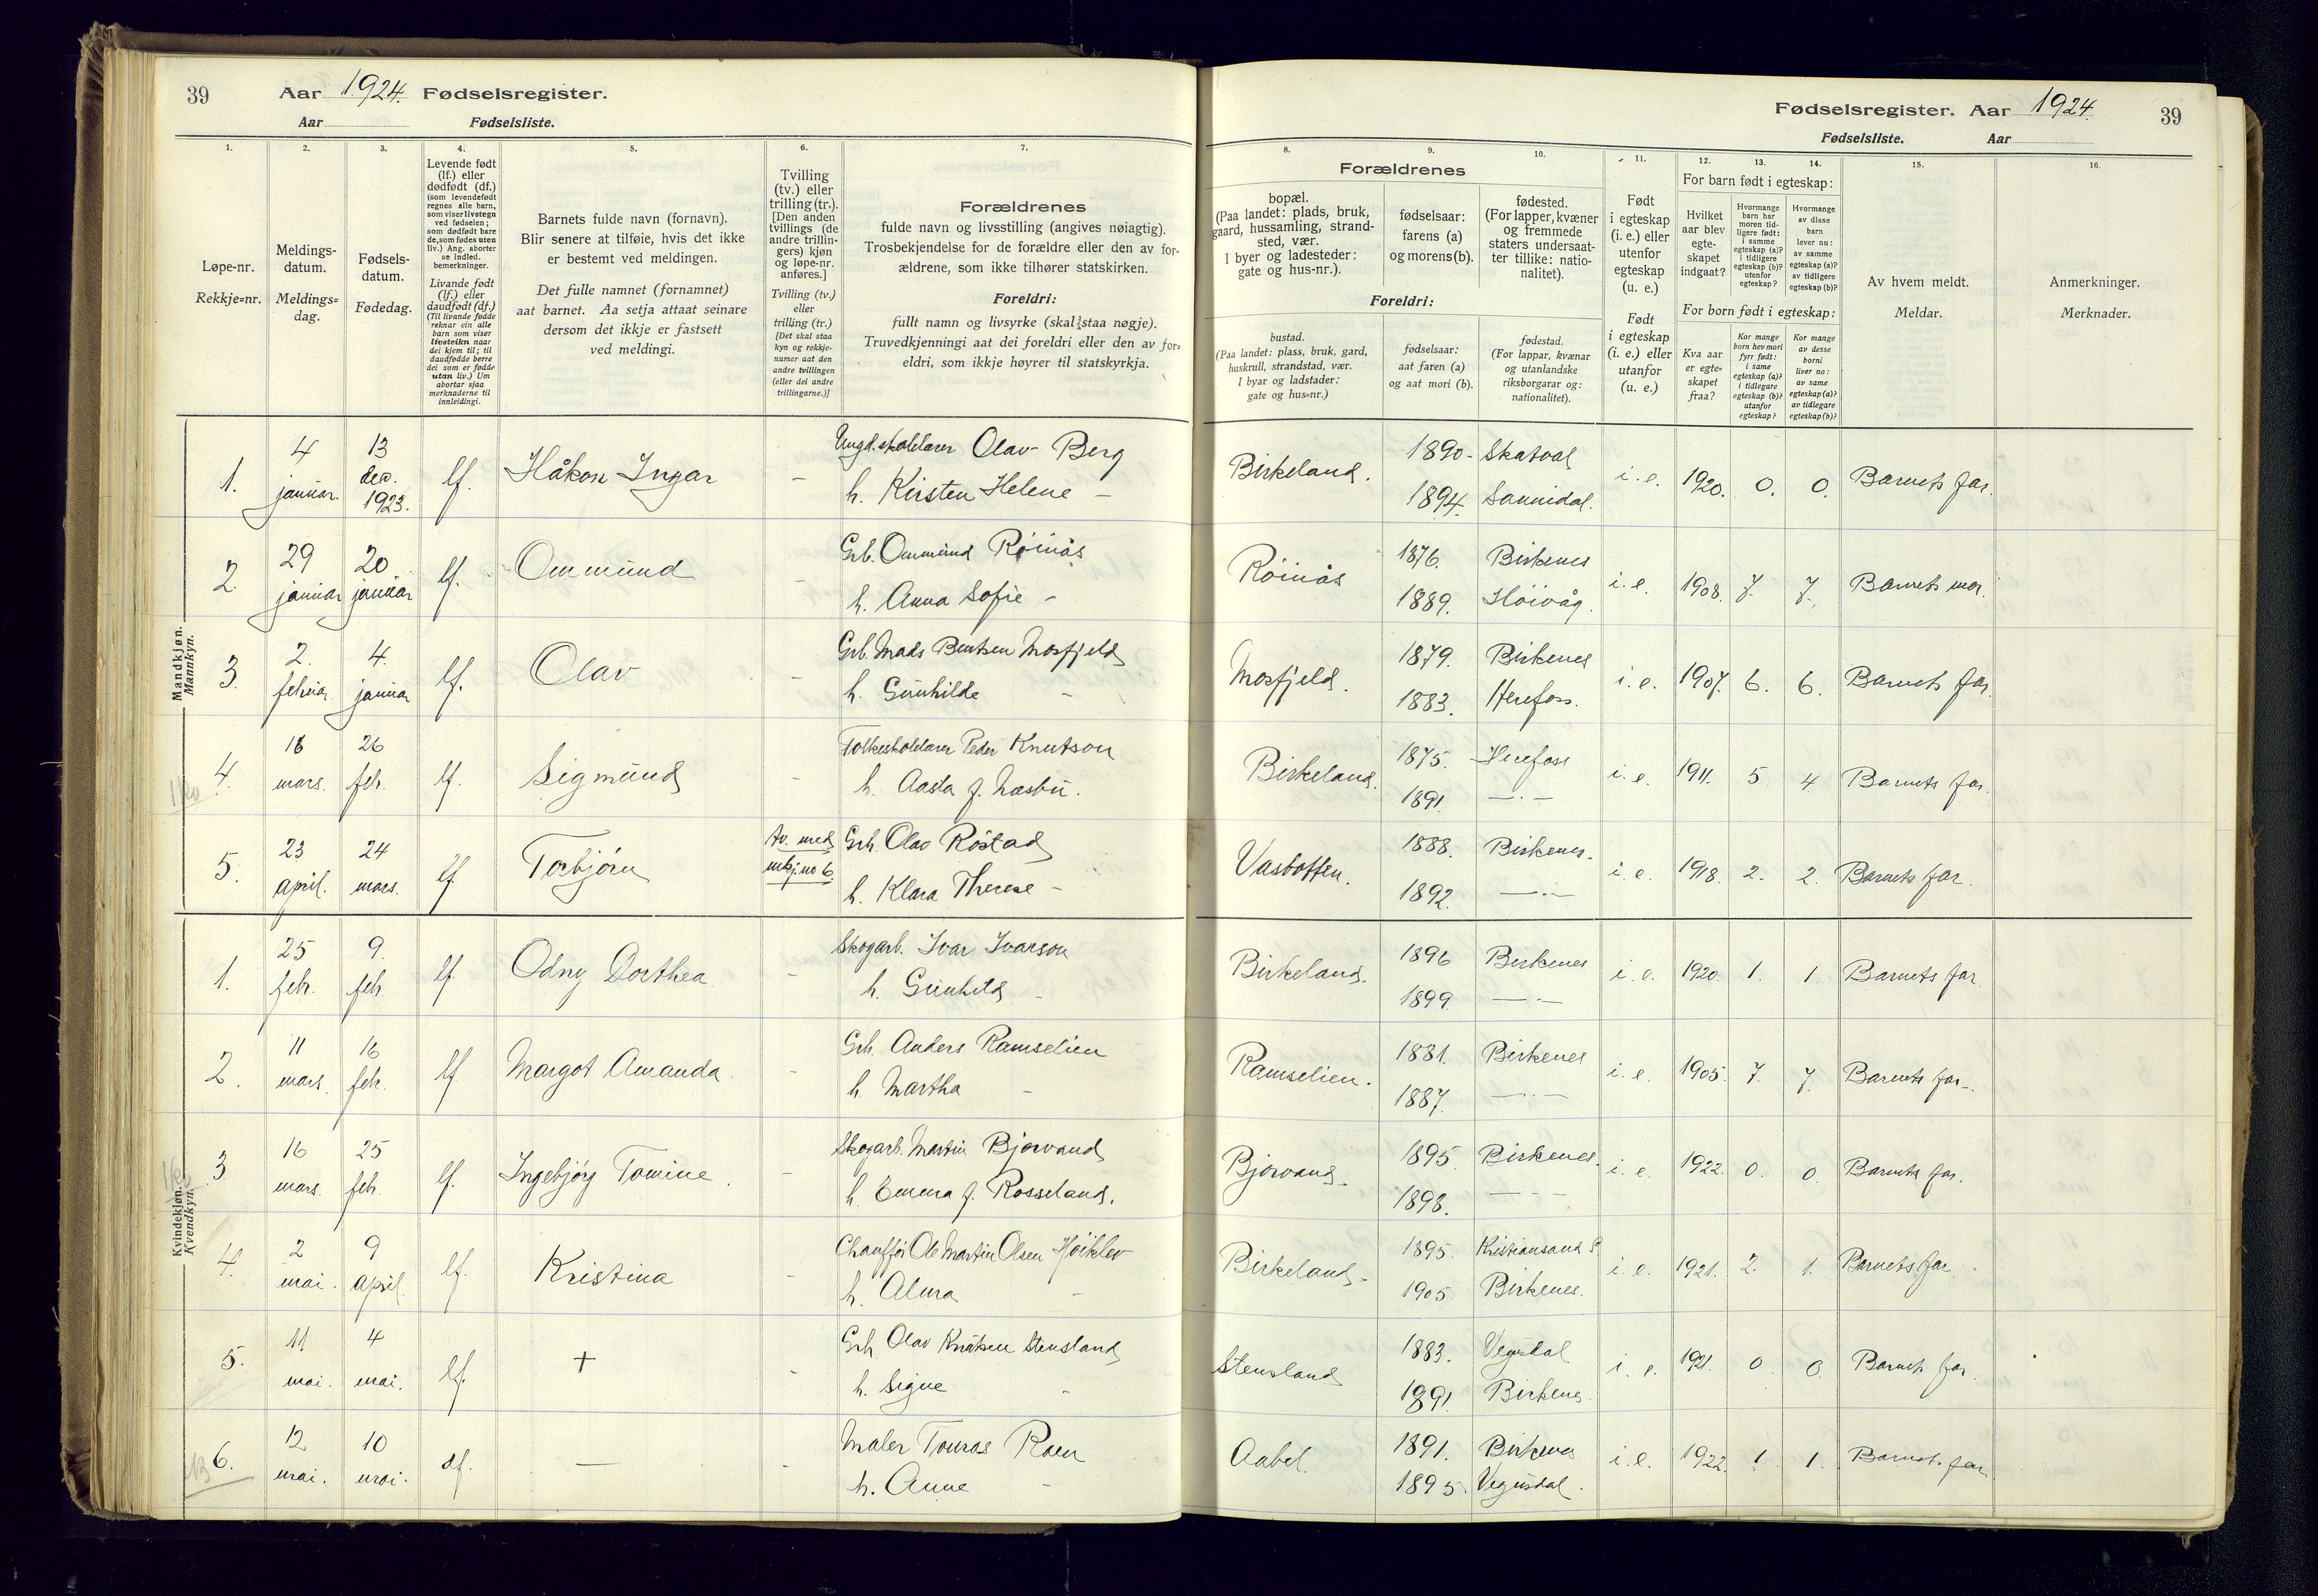 39 Aar 1924. Fødselsregister.
Aar Fødselsliste.
1. 2. 3. 4. 5. 6. 7.
Løpe-nr.
Rekkje=nr.
Meldings-
datum.
Meldings=
dag.
Fødsels-
datum.
Fødedag.
Levende født
(lf.) eller
dødfødt (df.)
(som levendefødt
regnes alle barn,
som viser livstegn
ved fødselen;
som dødfødt bare
de, som fødes uten
liv.) Ang. aborter
se indled.
bemerkninger.
Livande født
(lf.) eller
daudfødt (df.)
(Til livande fødde
reknar ein alle
barn som viser
livsteikn naar
dei kjem til; til
daudfødde berre
dei som er fødde
utan liv.) Um
abortar sjaa
merknaderne til
innleidingi.
Barnets fulde navn (fornavn).
Blir senere at tilføie, hvis det ikke
er bestemt ved meldingen.
Det fulle namnet (fornamnet)
aat barnet. Aa setja attaat seinare
dersom det ikkje er fastsett
ved meldingi.
Tvilling
(tv.) eller
trilling (tr.).
[Den anden
tvillings (de
andre trillin-
gers) kjøn
og løpe-nr.
anføres.]
Tvilling (tv.)
eller
trilling (tr.)
[Det skal staa
kyn og rekkje-
numer aat den
andre tvillingen
(eller dei andre
trillingarne.)]
Forældrenes
fulde navn og livsstilling (angives nøiagtig).
Trosbekjendelse for de forældre eller den av for-
ældrene, som ikke tilhører statskirken.
Foreldri:
fullt namn og livsyrke (skal staa nøgje).
Truvedkjenningi aat dei foreldri eller den av for=
eldri, som ikkje høyrer til statskyrkja.
Mandkjøn.
Mannkyn.
1. 4 januar. 13 dec. 1923. lf. Håkon Ingar - Ungd.skolelærer Olav Berg
h. Kirsten Helene -
2. 29 januar 20 januar lf. Ommund - Grb. Ommund Röinås
h. Anna Sofie -
3. 2. februar 4. januar lf. Olav - Grb. Mads Bentsen Mosfjeld
h. Gunhilde -
4. 18 mars. 26 feb. lf. Sigmund - Folkeskolelærer Peder Knutson
h. Aasta f. Næsbü.
5. 23 april. 24 mars. lf. Torbjörn Tv. med Grb. Olav Röstad
h. Klara Therese -
Kvindekjøn.
Kvendkyn.
1. 25 febr. 9. feb. lf. Odny Dorthea - Skogarb. Ivar Ivarson
h. Gunhild -
2. 11 mars. 16 feb. lf Margot Amanda. - Grb. Anders Ramselien
h. Martha -
3 16 mars. 25 feb. lf. Ingebjörg Tomine. - Skogarb. Martin Bjorvand
h. Emma f. Rosseland.
4. 2 mai. 9 april. lf. Kristina - Chauffør Ole Martin Olsen Höiklev
h. Alma -
5. 11 mai. 4 mai. lf. + - Grb. Olav Knutsen Stensland
h. Signe -
6. 12 mai. 10 mai. df. — - Maler Tomas Roen
h. Anne -
Fødselsregister. Aar 1924. 39
Fødselsliste. Aar
8. 9. 10. 11. 12. 13. 14. 15. 16.
Forældrenes
bopæl.
(Paa landet: plads, bruk,
gaard, hussamling, strand-
sted, vær.
I byer og ladesteder:
gate og hus-nr.).
fødselsaar:
farens (a)
og morens (b).
fødested.
(For lapper, kvæner
og fremmede
staters undersaat-
ter tillike: natio-
nalitet).
Foreldri:
bustad.
(Paa landet: plass, bruk, gard,
huskrull, strandstad, vær.
I byar og ladstader:
gate og hus=nr.)
fødselsaar:
aat faren (a)
og aat mori (b).
fødestad.
(For lappar, kvænar
og utanlandske
riksborgarar og:
nationalitet).
Født
i egteskap
(i. e.) eller
utenfor
egteskap
(u. e.)
Født
i egteskap
(i. e.) eller
utanfor
(u. e.)
For barn født i egteskap:
Hvilket
aar blev
egte-
skapet
indgaat?
Hvormange
barn har
moren tid-
ligere født:
i samme
egteskap (a)?
i tidligere
egteskap (b)?
utenfor
egteskap?
Hvormange
av disse
barn
lever nu:
av samme
egteskap (a)?
av tidligere
egteskap (b)?
For born født i egteskap:
Kva aar
er egte-
skapet
fraa?
Kor mange
born hev mori
fyrr født:
i same
egteskap (a)?
i tidlegare
egteskap (b)?
utanfor
egteskap?
Kor mange
av desse
borni
liver no:
av same
egteskap (a)?
av tidlegare
egteskap (b)?
Av hvem meldt.
Meldar.
Anmerkninger.
Merknader.
Birkeland. 1890 - Skatval i. e. 1920. 0. 0. Barnets far.
1894. Sannidal.
Röinås 1876. Birkenes i. e. 1908. 7. 7. Barnets mor.
1889. Höivåg.
Mosfjeld. 1879. Birkenes i. e. 1907. 6. 6. Barnets far.
1883. Herefoss.
Birkeland. 1875. Herefoss i. e. 1911. 5 4. Barnets far.
1891. —·—
1888. Birkenes. i. e. 1918. 2. 2. Barnets far.
1892. —·—
Birkeland. 1896 Birkenes i. e. 1920 1. 1. Barnets far.
1899. —·—
Ramselien. 1881. Birkenes i. e. 1905. 7. 7. Barnets far.
1887. —·—
Bjorvand. 1895. Birkenes. i. e. 1922. 0. 0. Barnets far.
1898. —·—
Birkeland. 1895. Kristiansand S. i. e. 1921. 2. 1. Barnets far.
1905. Birkenes.
Stensland 1883. Vegusdal i. e. 1921. 0 0. Barnets far.
1891. Birkenes.
Aabel. 1891. Birkenes i. e. 1922. 1. 1. Barnets far.
1895. Vegusdal.